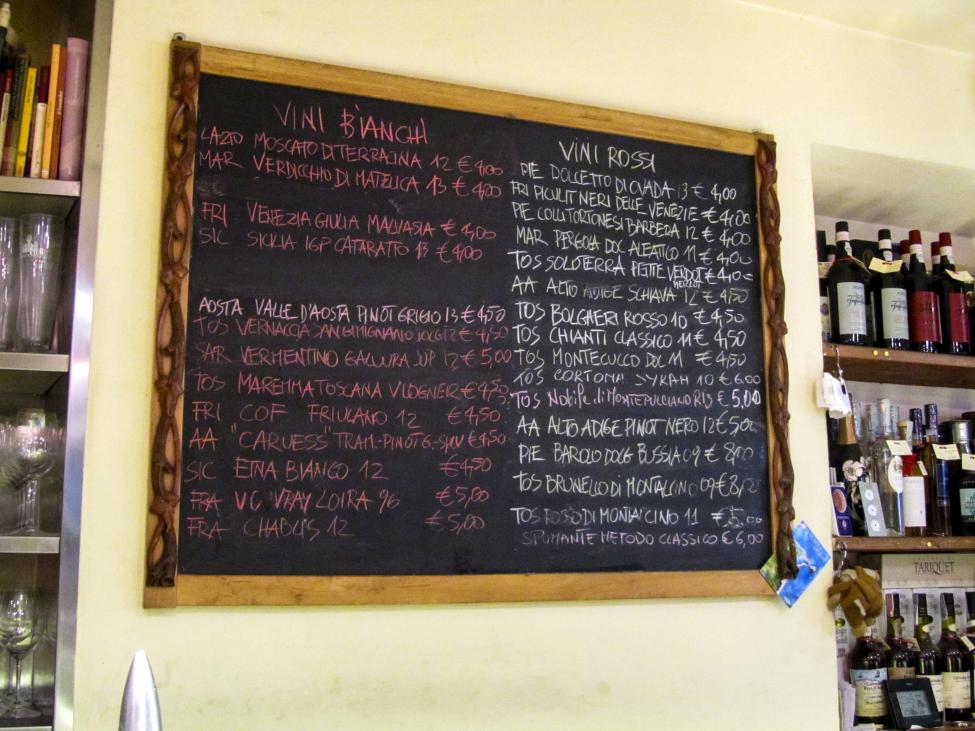 VINI BIANCHI
LAZIO MOSCATO DI TERRACINA 12 € 4,00
MAR VERDICCHIO DI MATELICA 13 € 4,00
FRI VENEZIA GIULIA MALVASIA € 4,00
SIC SICILIA IGP CATARATTO 13 € 4,00
AOSTA VALLE D'AOSTA PINOT GRIGIO 13 € 4,50
TOS VERNACCIA SAN GIMIGNANO € 4,50
SAR VERMENTINO GALLURA € 5,00
TOS MAREMMA TOSCANA VIOGNIER € 4,50
FRI COF FRIULANO 12 € 4,50
AA "CARUESS" TRAM-PINOT G.- € 4,50
SIC ETNA BIANCO 12 € 4,50
FRA VOUVRAY LOIRA 96 € 5,00
FRA CHABLIS 12 € 5,00
VINI ROSSI
PIE DOLCETTO DI OVADA 13 € 4,00
FRI PICULIT NERI DELLE VENEZIE € 4,00
PIE COLLI TORTONESI BARBERA 12 € 4,00
MAR PERGOLA DOC ALEATICO 11 € 4,00
TOS SOLOTERRA PETITE VERDOT € 4,00
MERLOT
AA ALTO ADIGE SCHIAVA 12 € 4,50
TOS BOLGHERI ROSSO 10 € 4,50
TOS CHIANTI CLASSICO 11 € 4,50
TOS MONTECUCCO DOC 11 € 4,50
TOS CORTONA SYRAH 10 € 6,00
TOS Nobile di MONTEPULCIANO € 5,00
AA ALTO ADIGE PINOT NERO 12 € 5,00
PIE BAROLO DOCG BUSSIA 09 € 8,00
TOS BRUNELLO DI MONTALCINO 09 €
TOS ROSSO DI MONTALCINO 11 € 5,00
SPUMANTE METODO CLASSICO € 6,00
TARIQUET